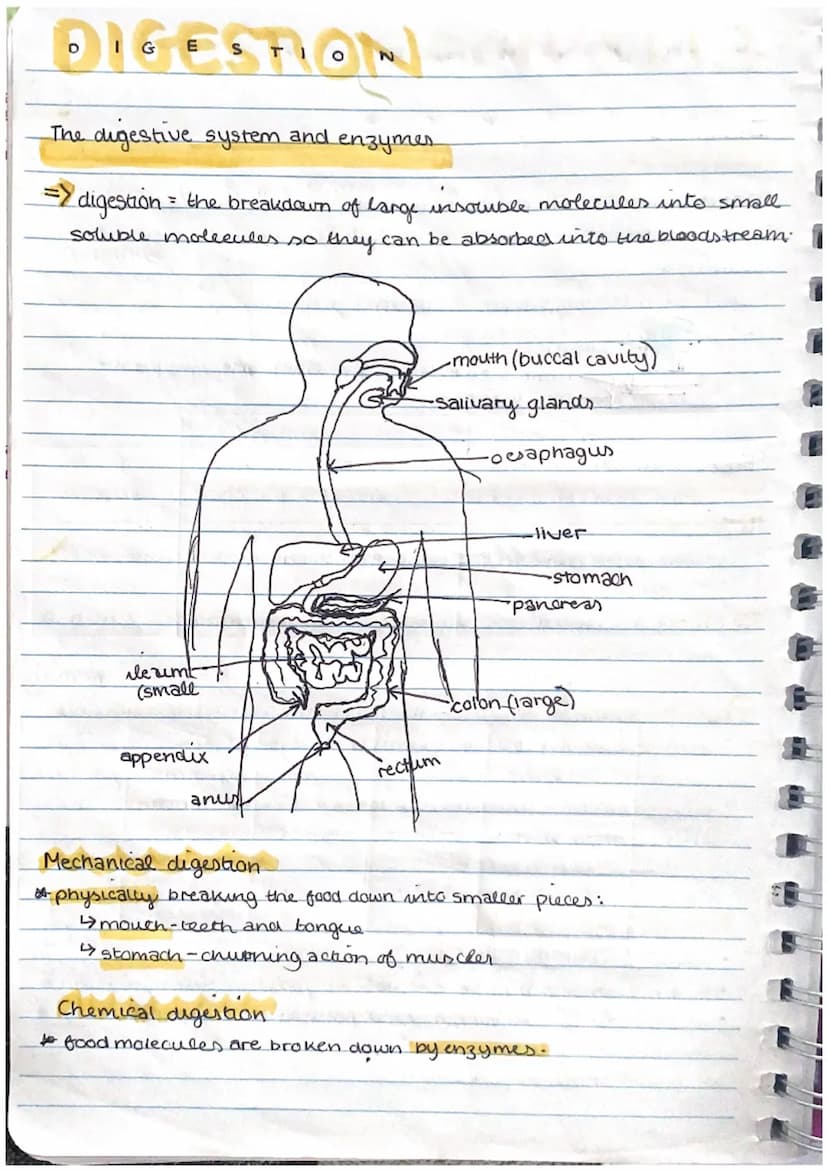 DIGESTION
The digestive system and enzymes
=> digestion = the breakdown of large insoluble molecules into small
soluble molecules so they can be absorbed into the bloodstream.
mouth (buccal cavity)
salivary glands
oesaphagus
liver
stomach
pancreas
ileum
(small
colon (large)
appendix
rectum
anus
Mechanical digestion
* physically breaking the food down into smaller pieces:
↳ mouth - teeth and tongue
↳ stomach - churning action of muscles
Chemical digestion
* food molecules are broken down by enzymes.